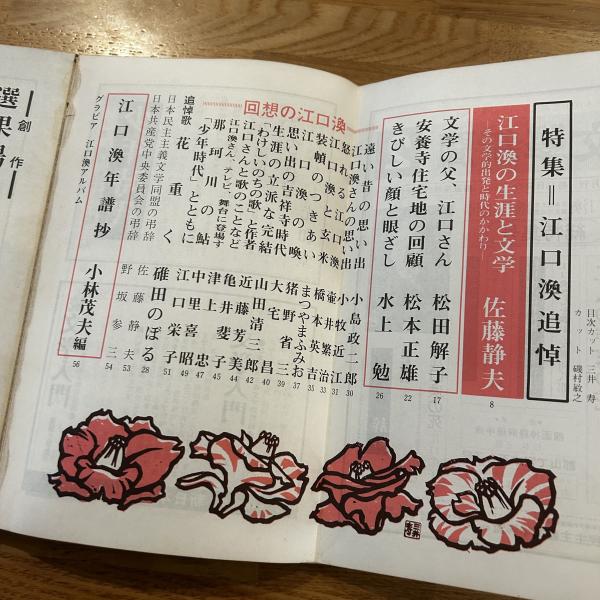 特集＝江口渙追悼
目次カット 三井 寿
カット 磯村敏之
江口渙の生涯と文学 佐藤静夫 8
―その文学的出発と時代のかかわり―
文学の父、江口さん 松田解子 17
安養寺住宅地の回顧 松本正雄 22
きびしい顔と眼ざし 水上 勉 26
回想の江口渙
遠い昔の思い出 小島政二郎 30
江口渙さんの思い出 小牧近江 31
怒れる江口渙 壷井繁治 33
装幀のつきあい 橋本英吉 35
江口渙と玄米 まつやまふみお 37
江口渙の喚 猪野省三 39
思い出の吉祥寺時代 大宅 昌 40
生涯の立派な完結 山田清三郎 42
「わけしいのちの歌」と作者 近藤芳美 44
江口さんと歌のことなど 亀井斐子 45
江口渙さん、テレビ、舞台に登場す 忠 47
那珂川の鮎 中里喜昭 49
「少年時代」とともに 江口栄子 51
追悼歌 花重く 碓田のぼる 28
日本民主主義文学同盟の弔辞 佐藤静夫 53
日本共産党中央委員会の弔辞 野坂参三 54
江口渙年譜抄 小林茂夫編 56
グラビア 江口渙アルバム
創作